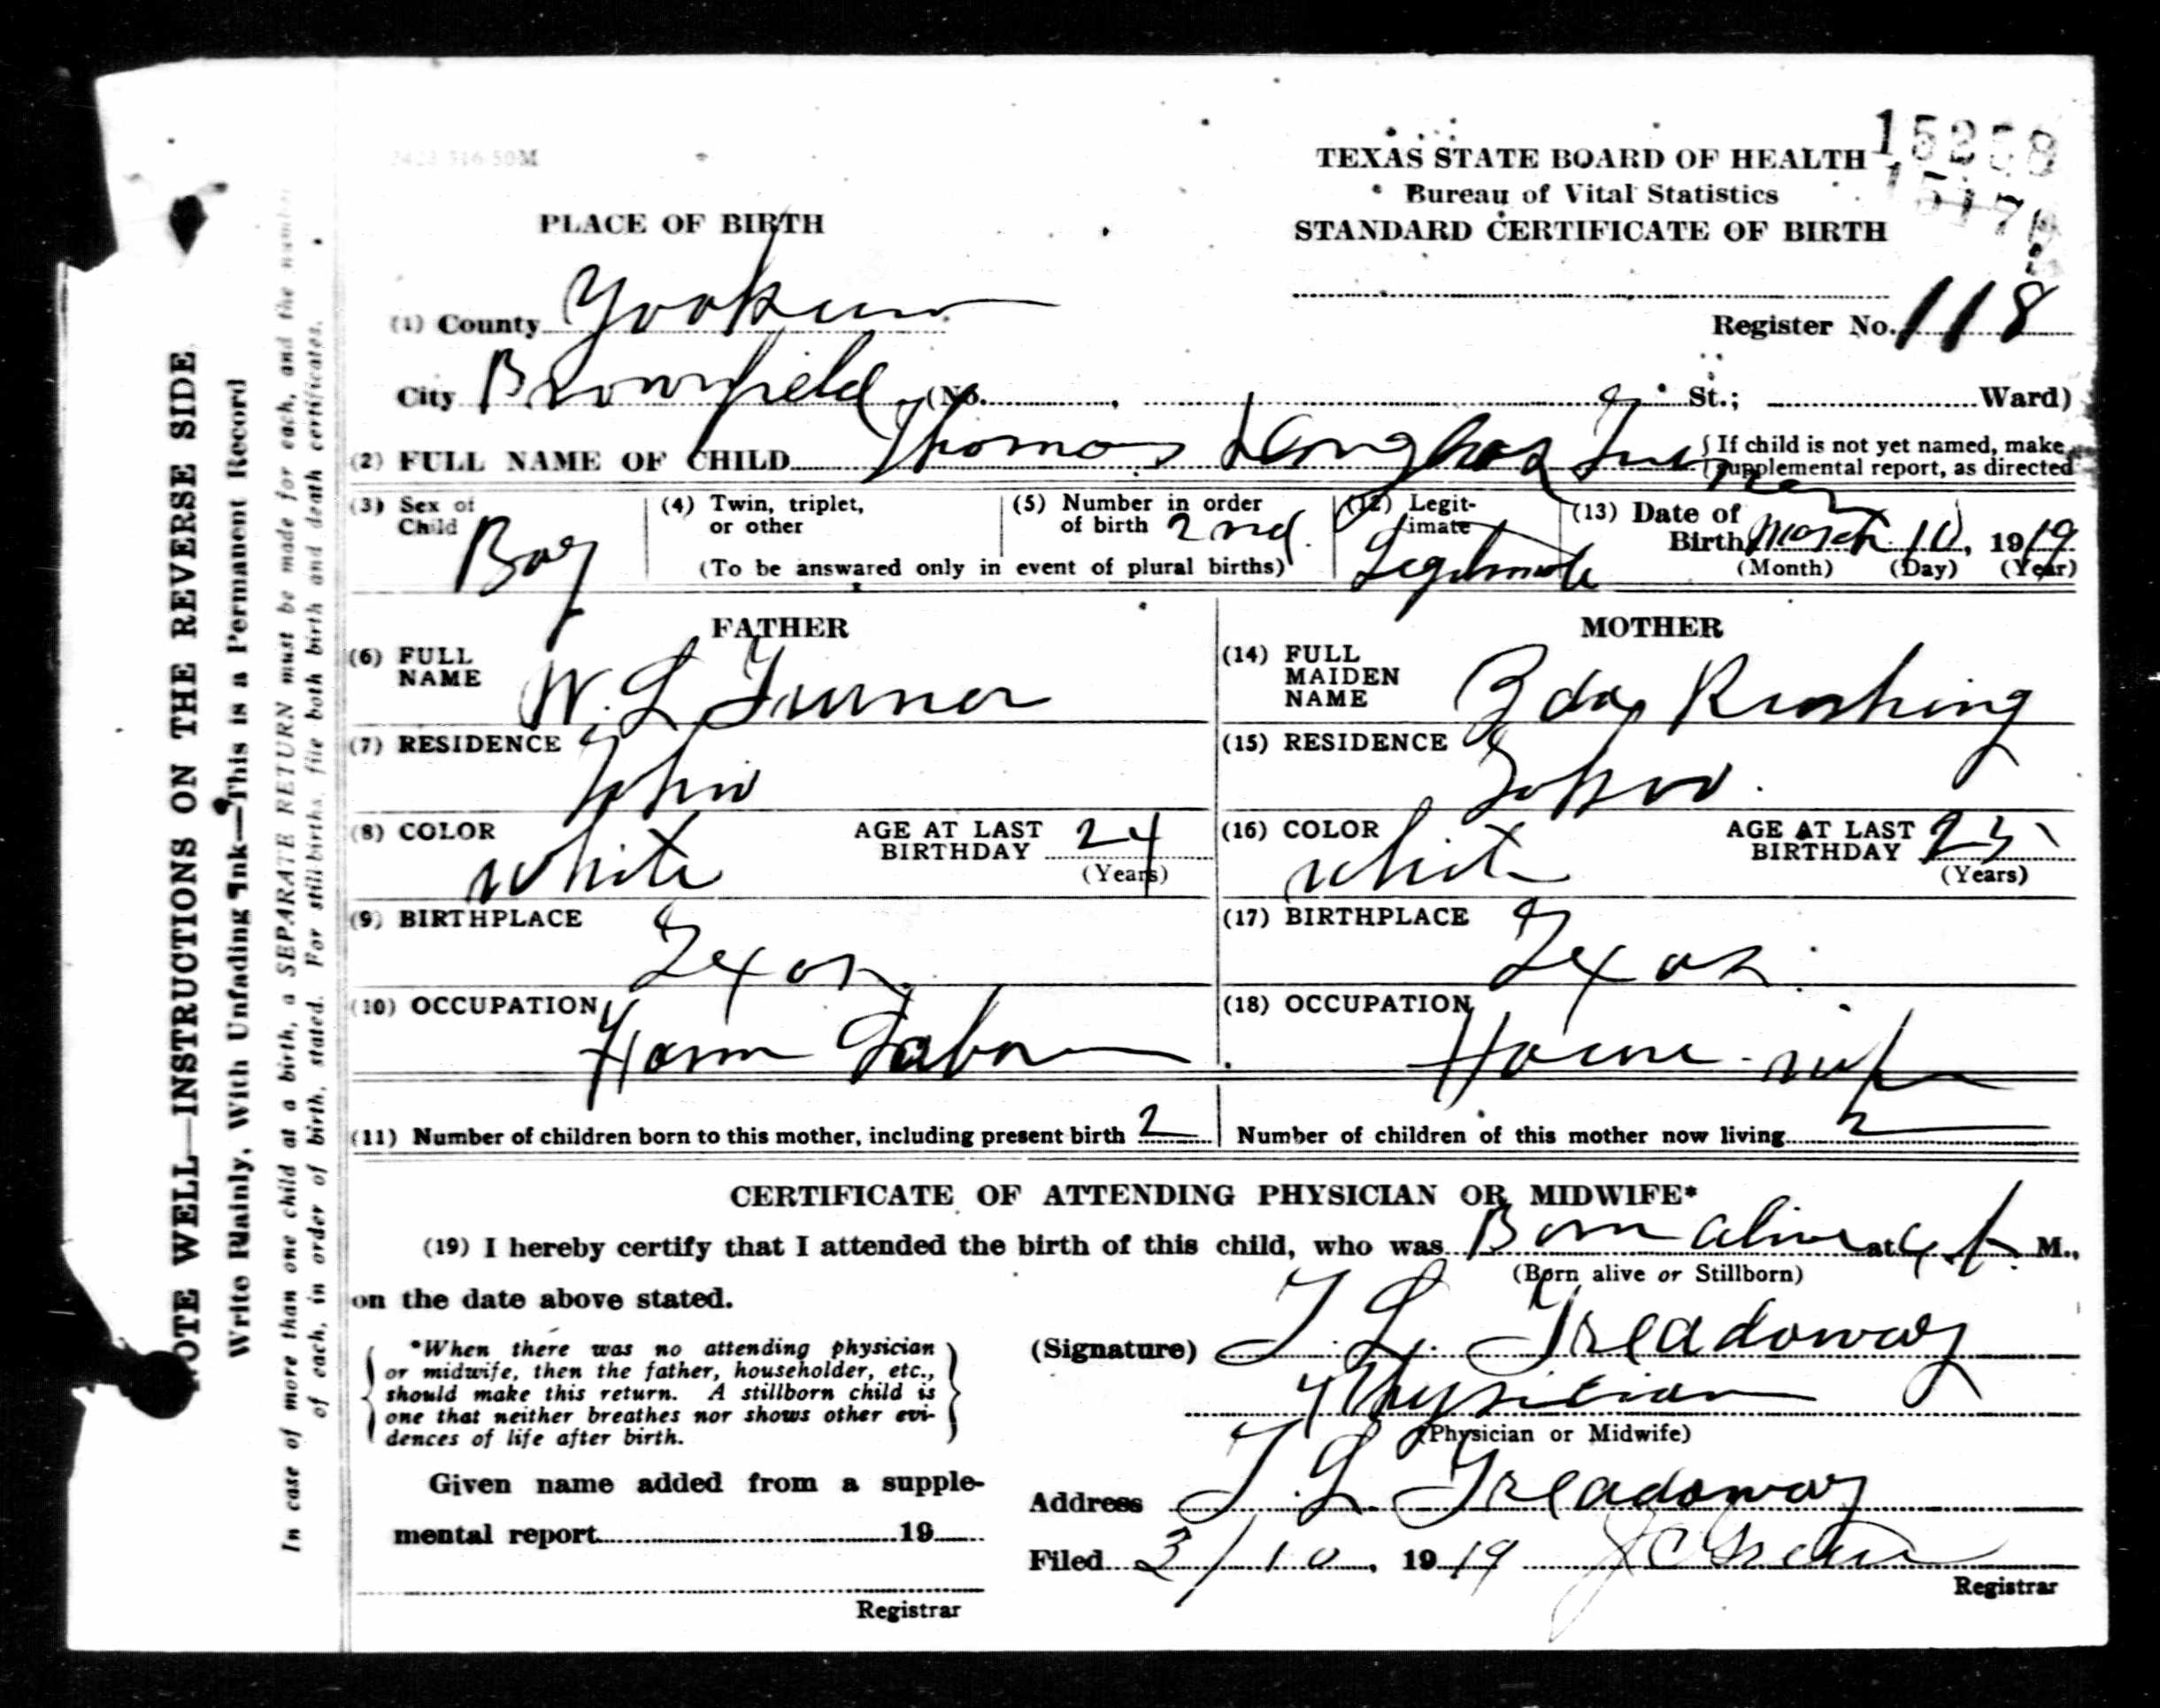 2423 316 50M
TEXAS STATE BOARD OF HEALTH
Bureau of Vital Statistics
STANDARD CERTIFICATE OF BIRTH
PLACE OF BIRTH
(1) County Yoakum
Register No. 118
City Brownfield (No. , St.; Ward)
(2) FULL NAME OF CHILD Thomas Turner
{ If child is not yet named, make
{ supplemental report, as directed
(3) Sex of Child Boy
(4) Twin, triplet, or other
(5) Number in order of birth 2nd.
(To be answared only in event of plural births)
(12) Legitimate Legitimate
(13) Date of Birth March 10, 1919
(Month) (Day) (Year)
FATHER
(6) FULL NAME W. L Turner
(7) RESIDENCE
(8) COLOR White AGE AT LAST BIRTHDAY 24
(Years)
(9) BIRTHPLACE Texas
(10) OCCUPATION Farm Labor
MOTHER
(14) FULL MAIDEN NAME Rushing
(15) RESIDENCE
(16) COLOR White AGE AT LAST BIRTHDAY 23
(Years)
(17) BIRTHPLACE Texas
(18) OCCUPATION House-wife
(11) Number of children born to this mother, including present birth 2
Number of children of this mother now living 2
CERTIFICATE OF ATTENDING PHYSICIAN OR MIDWIFE*
(19) I hereby certify that I attended the birth of this child, who was Born alive at 4 P. M.,
(Born alive or Stillborn)
on the date above stated.
*When there was no attending physician
or midwife, then the father, householder, etc.,
should make this return. A stillborn child is
one that neither breathes nor shows other evi-
dences of life after birth.
(Signature) T. L. Treadaway
Physician
(Physician or Midwife)
Given name added from a supple-
mental report 19
Registrar
Address T. L Treadaway
Filed 3/10, 1919
Registrar
NOTE WELL—INSTRUCTIONS ON THE REVERSE SIDE
Write Plainly, With Unfading Ink—This is a Permanent Record
In case of more than one child at a birth, a SEPARATE RETURN must be made for each, and the number
of each, in order of birth, stated. For stillbirths, file both birth and death certificates.